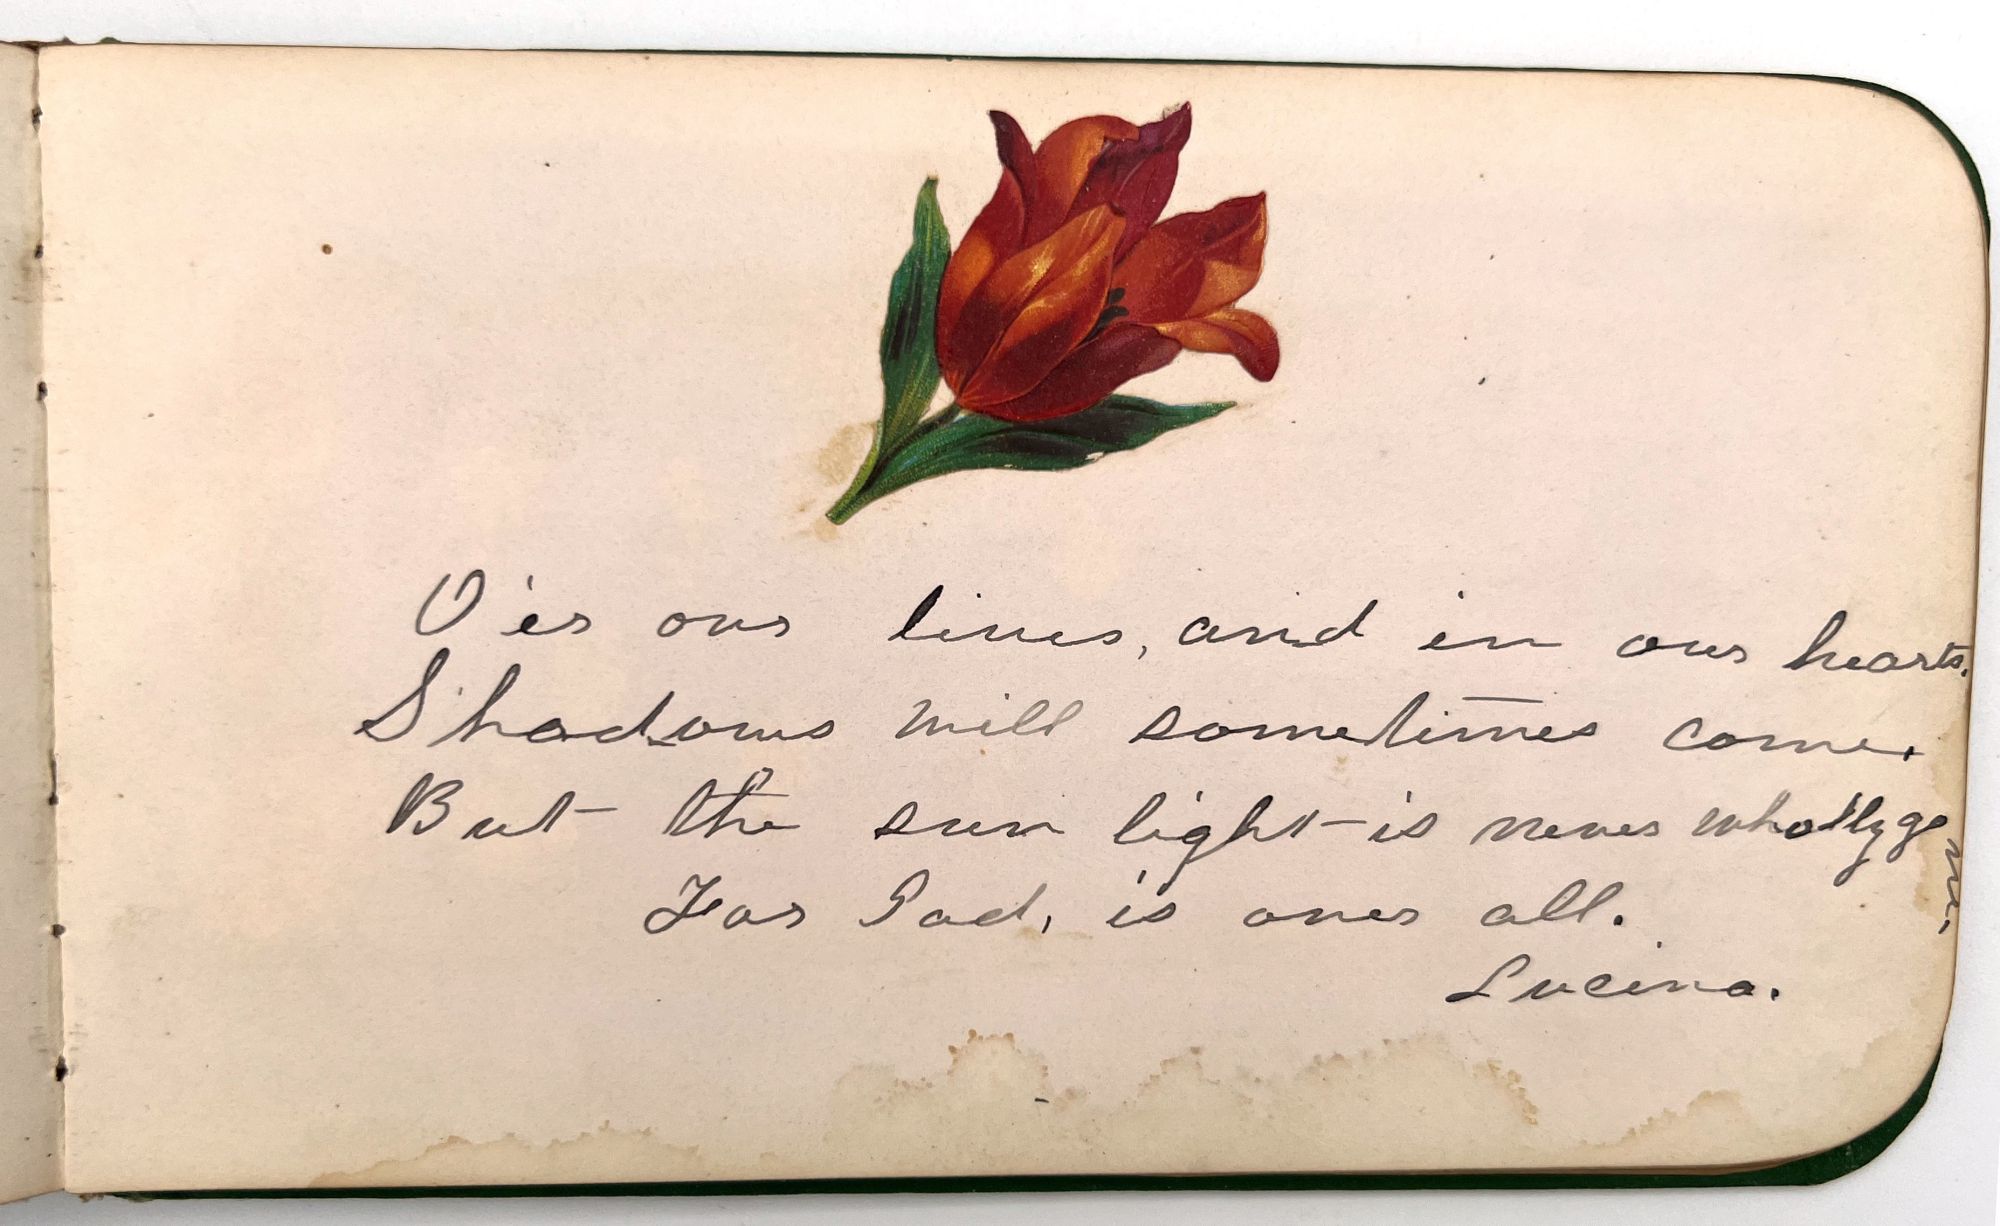 O'er our lives, and in our hearts.
Shadows will sometimes come.
But the sun light is never wholly gone.
For God, is over all.
Lucina.